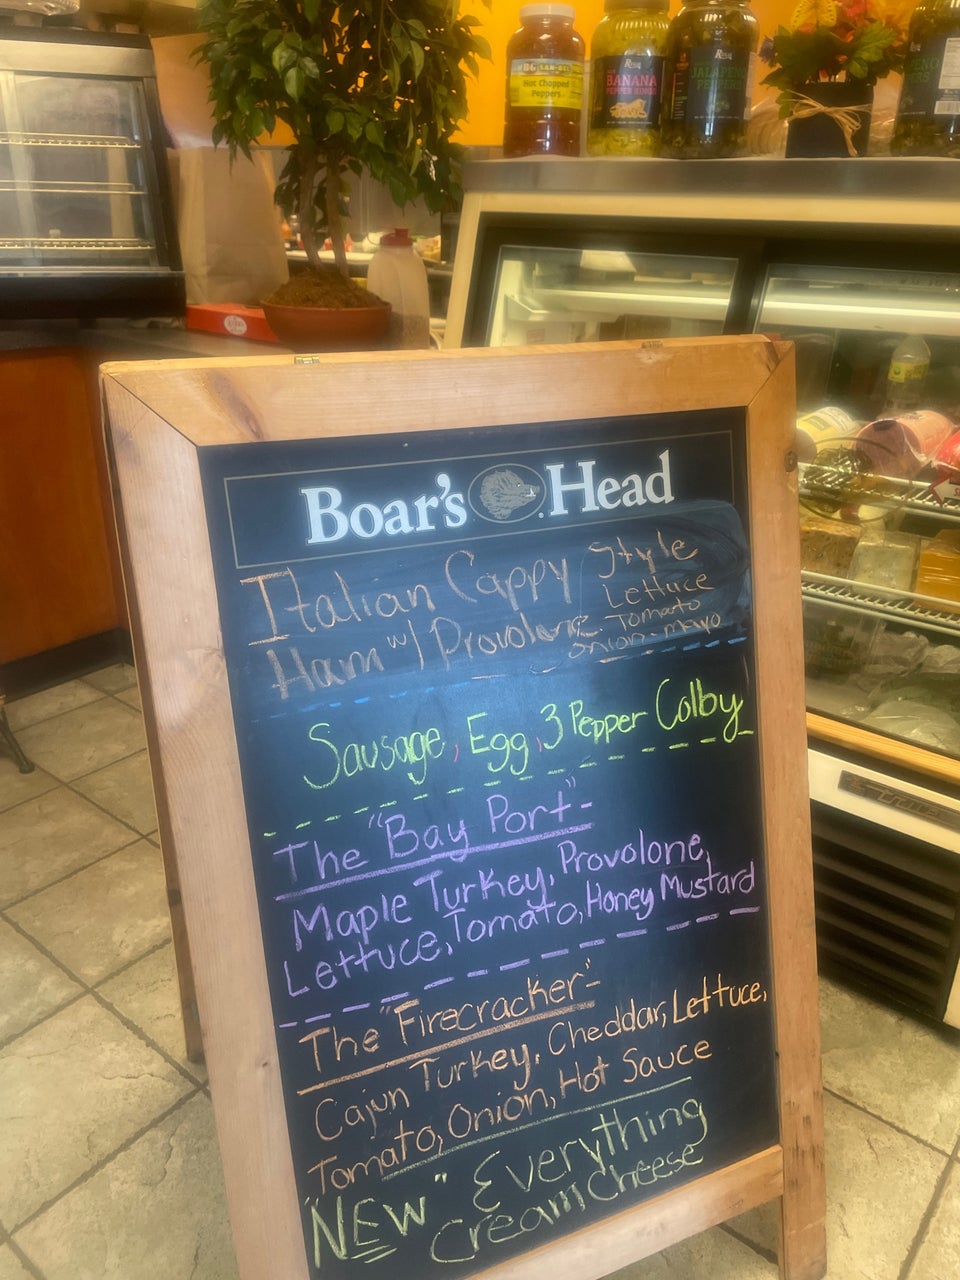 Hot Chopped
Peppers
BANANA
PEPPER RINGS
JALAPENO
PEPPERS
Boar's Head
Italian Cappy Style
Ham w/ Provolone
Lettuce
Tomato
onion-mayo
Sausage, Egg, 3 Pepper Colby
The "Bay Port"-
Maple Turkey, Provolone,
Lettuce, Tomato, Honey Mustard
The "Firecracker"-
Cajun Turkey, Cheddar, Lettuce,
Tomato, Onion, Hot Sauce
"NEW" Everything
Cream Cheese